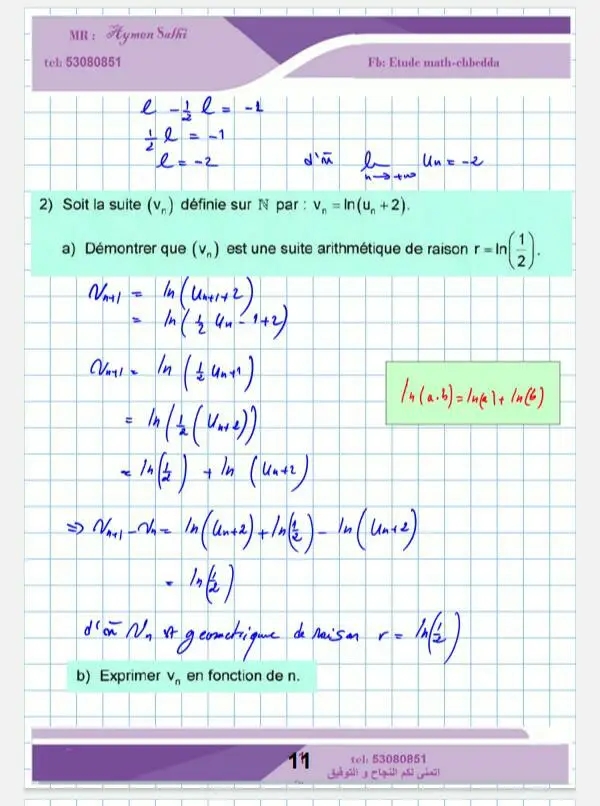 MR : Aymen Salhi
tel: 53080851
Fb: Etude math-chbedda
l - 1/2 l = -1
1/2 l = -1
l = -2 d'où lim n→+∞ Un = -2
2) Soit la suite (vₙ) définie sur ℕ par : vₙ = ln(uₙ + 2).
a) Démontrer que (vₙ) est une suite arithmétique de raison r = ln(1/2).
Vn+1 = ln(Un+1+2)
= ln(1/2 Un - 1+2)
Vn+1 = ln(1/2 Un+1)
ln(a.b) = ln(a) + ln(b)
= ln(1/2(Un+2))
= ln(1/2) + ln(Un+2)
⇒ Vn+1 - Vn = ln(Un+2) + ln(1/2) - ln(Un+2)
= ln(1/2)
d'où Vn est geometrique de raison r = ln(1/2)
b) Exprimer vₙ en fonction de n.
11
tel: 53080851
اتمنى لكم النجاح و التوفيق